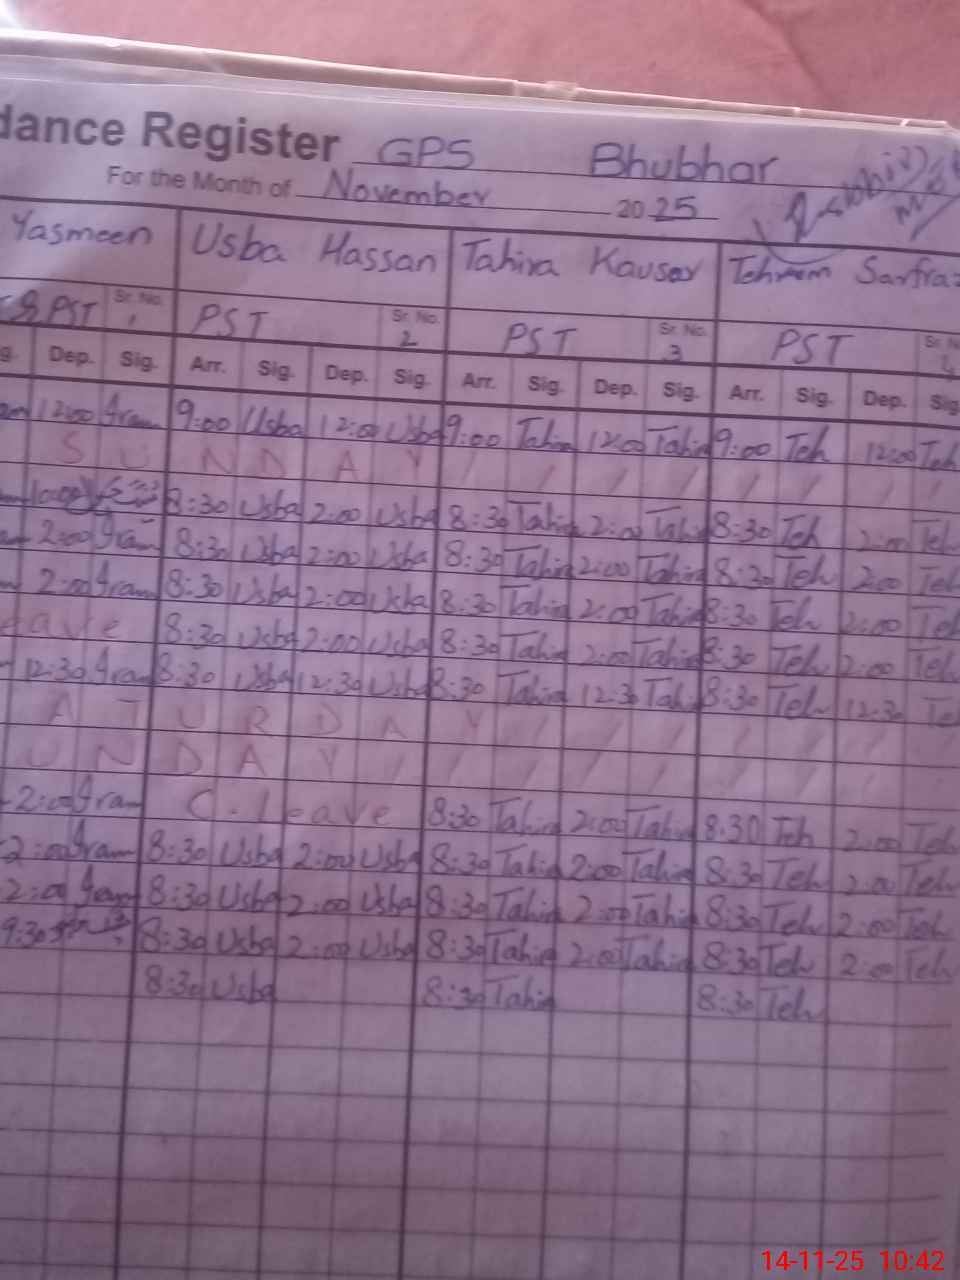 dance Register GPS Bhubhar
For the Month of November 2025
Yasmeen Usba Hassan Tahira Kausar Tehreem Sarfraz
PST Sr. No. 1 PST Sr. No. 2 PST Sr. No. 3 PST Sr. No. 4
g. Dep. Sig. Arr. Sig. Dep. Sig. Arr. Sig. Dep. Sig. Arr. Sig. Dep. Sig.
12:00 9:00 Usba 12:00 Usba 9:00 Tahira 12:00 Tahira 9:00 Teh 12:00 Teh
S U N D A Y / / / / / / / /
8:30 Usba 2:00 Usba 8:30 Tahira 2:00 Tahira 8:30 Teh 2:00 Teh
2:00 8:30 Usba 2:00 Usba 8:30 Tahira 2:00 Tahira 8:30 Teh 2:00 Teh
2:00 8:30 Usba 2:00 Usba 8:30 Tahira 2:00 Tahira 8:30 Teh 2:00 Teh
eave 8:30 Usba 2:00 Usba 8:30 Tahira 2:00 Tahira 8:30 Teh 2:00 Teh
12:30 8:30 Usba 12:30 Usba 8:30 Tahira 12:30 Tahira 8:30 Teh 12:30 Te
A T U R D A Y / / / / / / /
U N D A Y / / / / / / / / /
2:00 C. Leave 8:30 Tahira 2:00 Tahira 8:30 Teh 2:00 Teh
2:00 8:30 Usba 2:00 Usba 8:30 Tahira 2:00 Tahira 8:30 Teh 2:00 Teh
2:00 8:30 Usba 2:00 Usba 8:30 Tahira 2:00 Tahira 8:30 Teh 2:00 Teh
9:30 8:30 Usba 2:00 Usba 8:30 Tahira 2:00 Tahira 8:30 Teh 2:00 Teh
8:30 Usba 8:30 Tahira 8:30 Teh
14-11-25 10:42